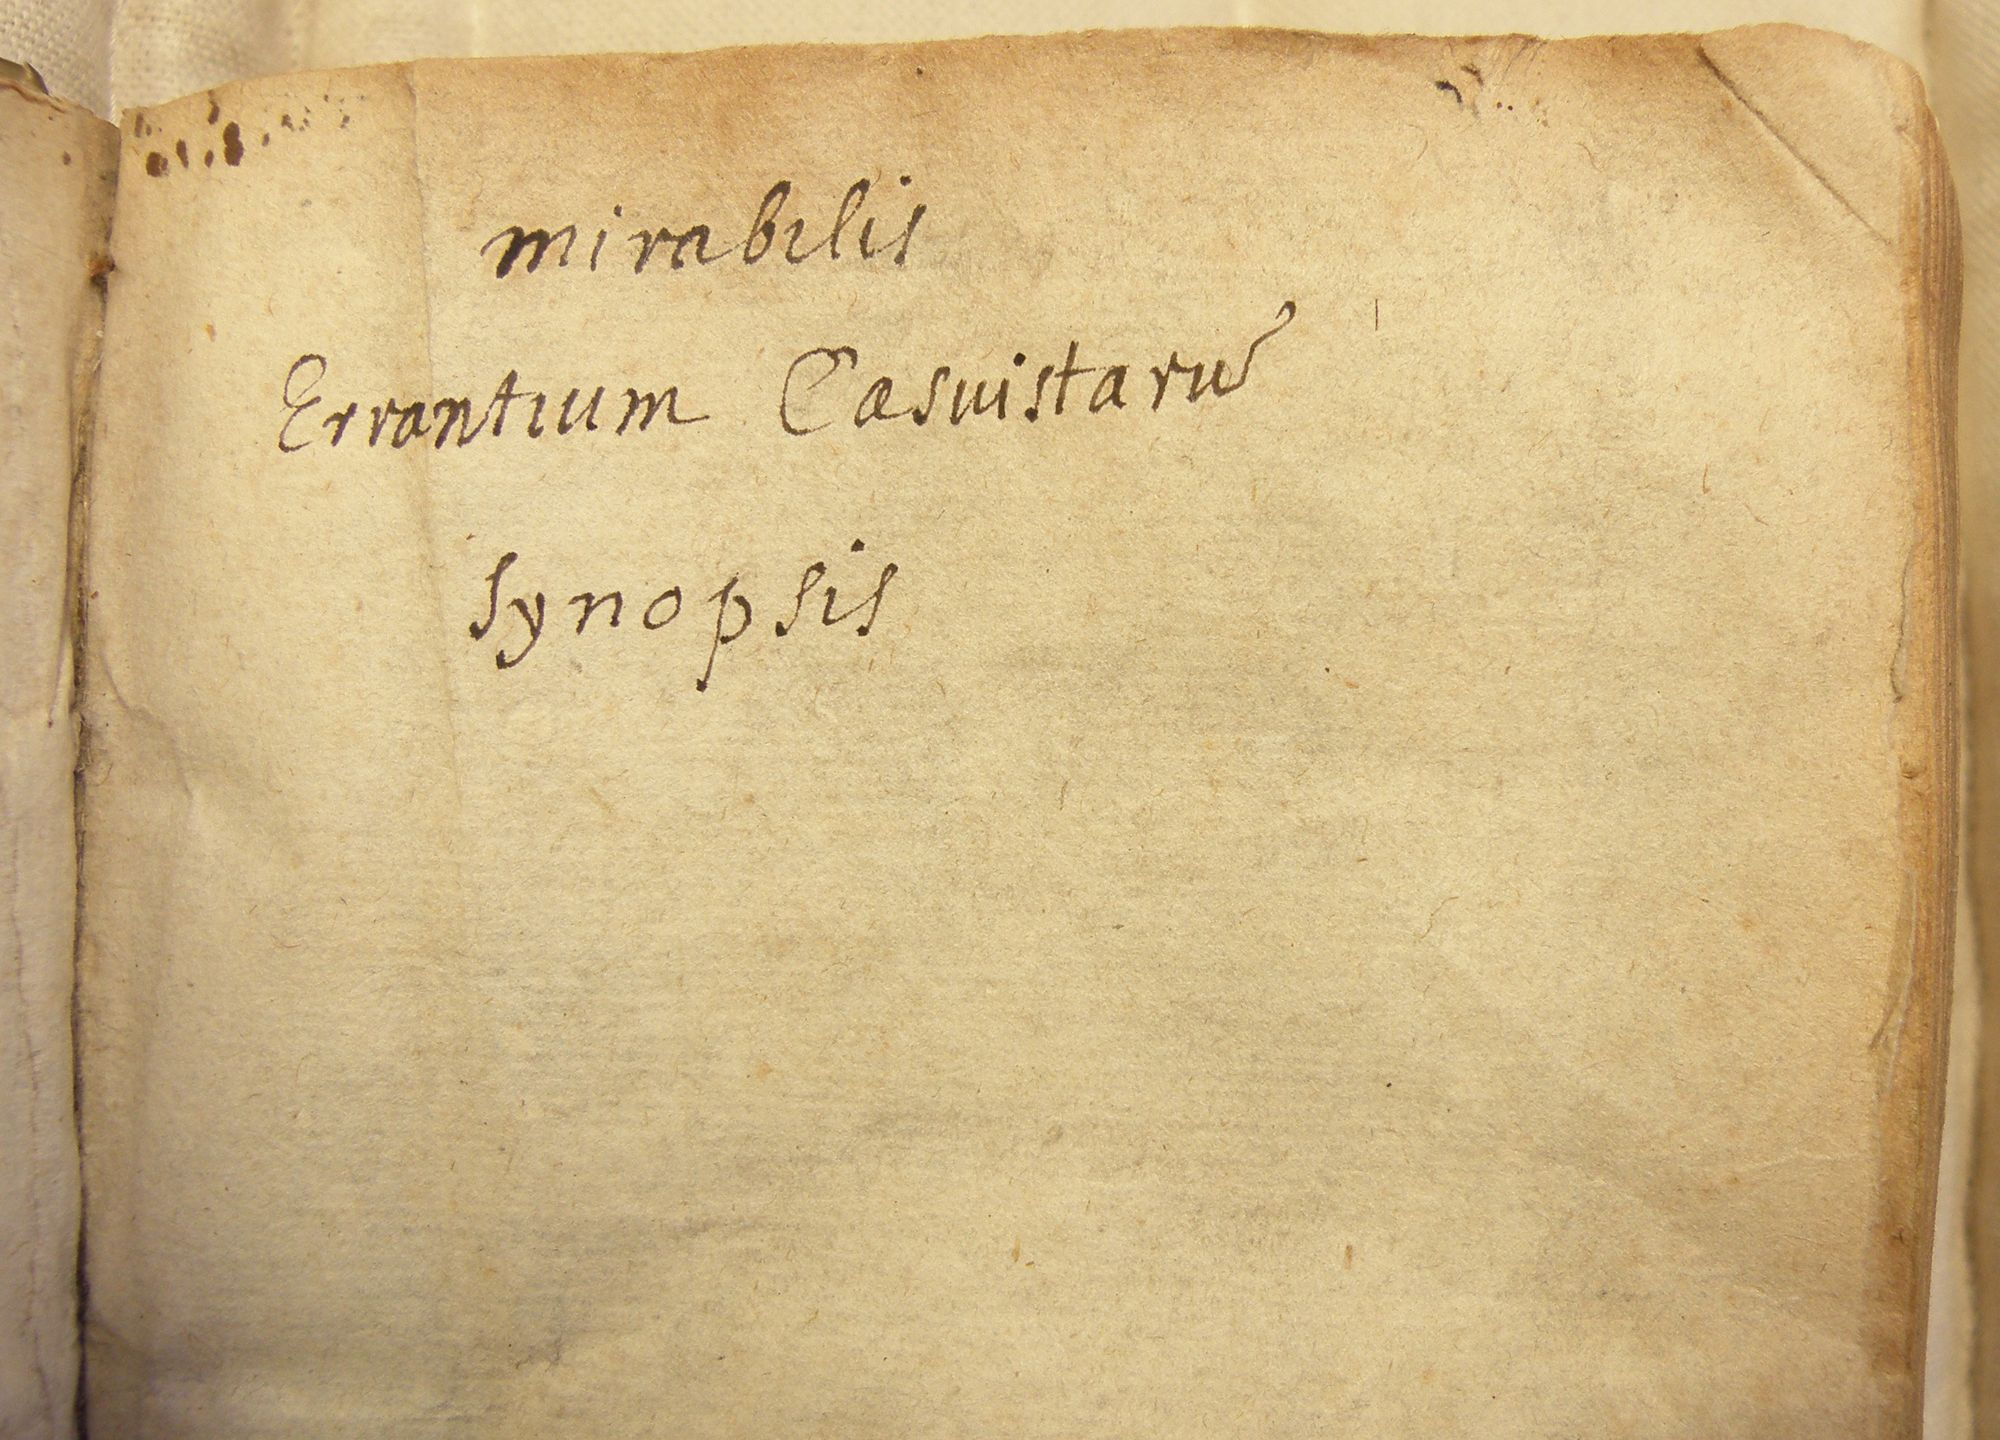 mirabilis
Errantium Casuistarũ
synopsis